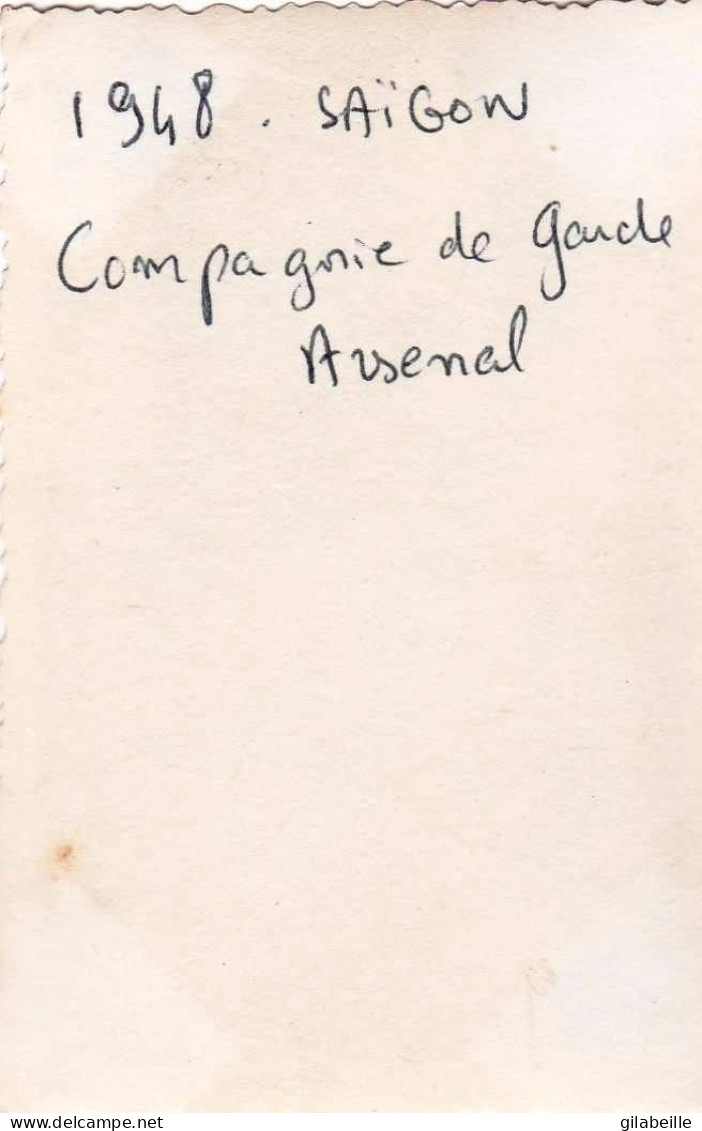 1948. SAÏGON
Compagnie de Garde
Arsenal
delcampe.net
gilabeille